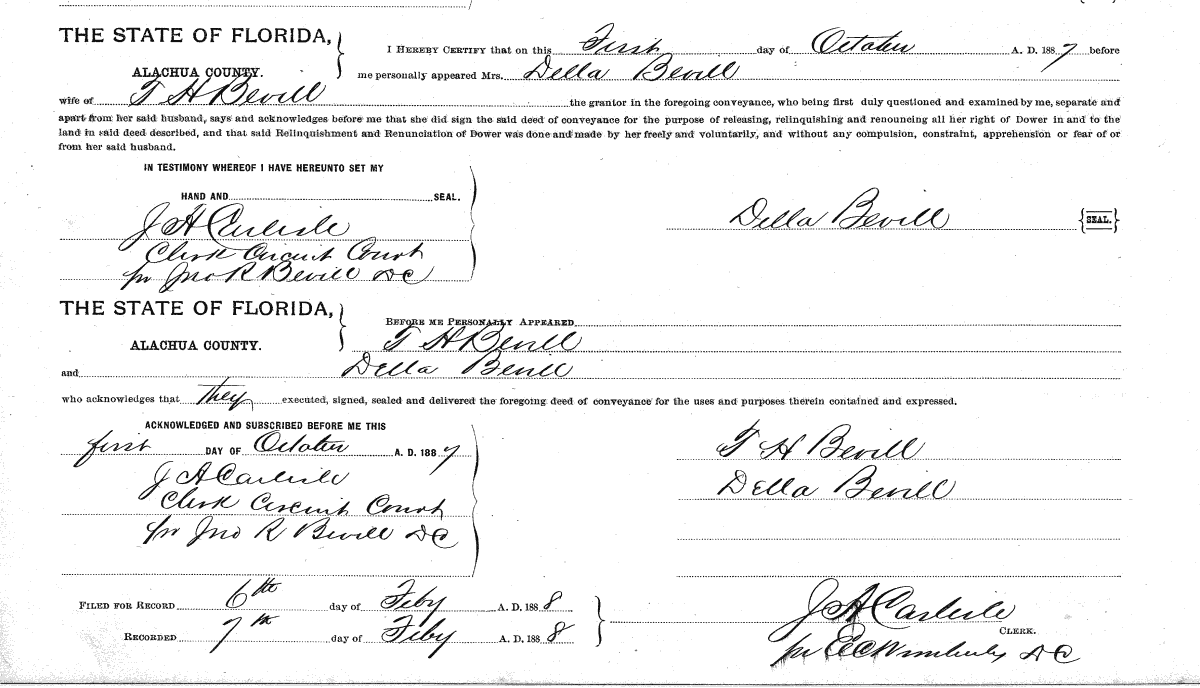 THE STATE OF FLORIDA,
ALACHUA COUNTY.
I HEREBY CERTIFY that on this First day of October A. D. 1887 before
me personally appeared Mrs. Della Bevill
wife of T H Bevill the grantor in the foregoing conveyance, who being first duly questioned and examined by me, separate and
apart from her said husband, says and acknowledges before me that she did sign the said deed of conveyance for the purpose of releasing, relinquishing and renouncing all her right of Dower in and to the
land in said deed described, and that said Relinquishment and Renunciation of Dower was done and made by her freely and voluntarily, and without any compulsion, constraint, apprehension or fear of or
from her said husband.
IN TESTIMONY WHEREOF I HAVE HEREUNTO SET MY
HAND AND SEAL.
J A Carlisle
Clerk Circuit Court
pr Jno R Bevill DC
Della Bevill {SEAL.}
THE STATE OF FLORIDA,
ALACHUA COUNTY.
BEFORE ME PERSONALLY APPEARED
T H Bevill
and Della Bevill
who acknowledges that they executed, signed, sealed and delivered the foregoing deed of conveyance for the uses and purposes therein contained and expressed.
ACKNOWLEDGED AND SUBSCRIBED BEFORE ME THIS
first DAY OF October A. D. 1887
J A Carlisle
Clerk Circuit Court
pr Jno R Bevill DC
T H Bevill
Della Bevill
FILED FOR RECORD 6th day of Feby A. D. 1888
RECORDED 7th day of Feby A. D. 1888
J A Carlisle
CLERK.
pr E C Wimberly DC